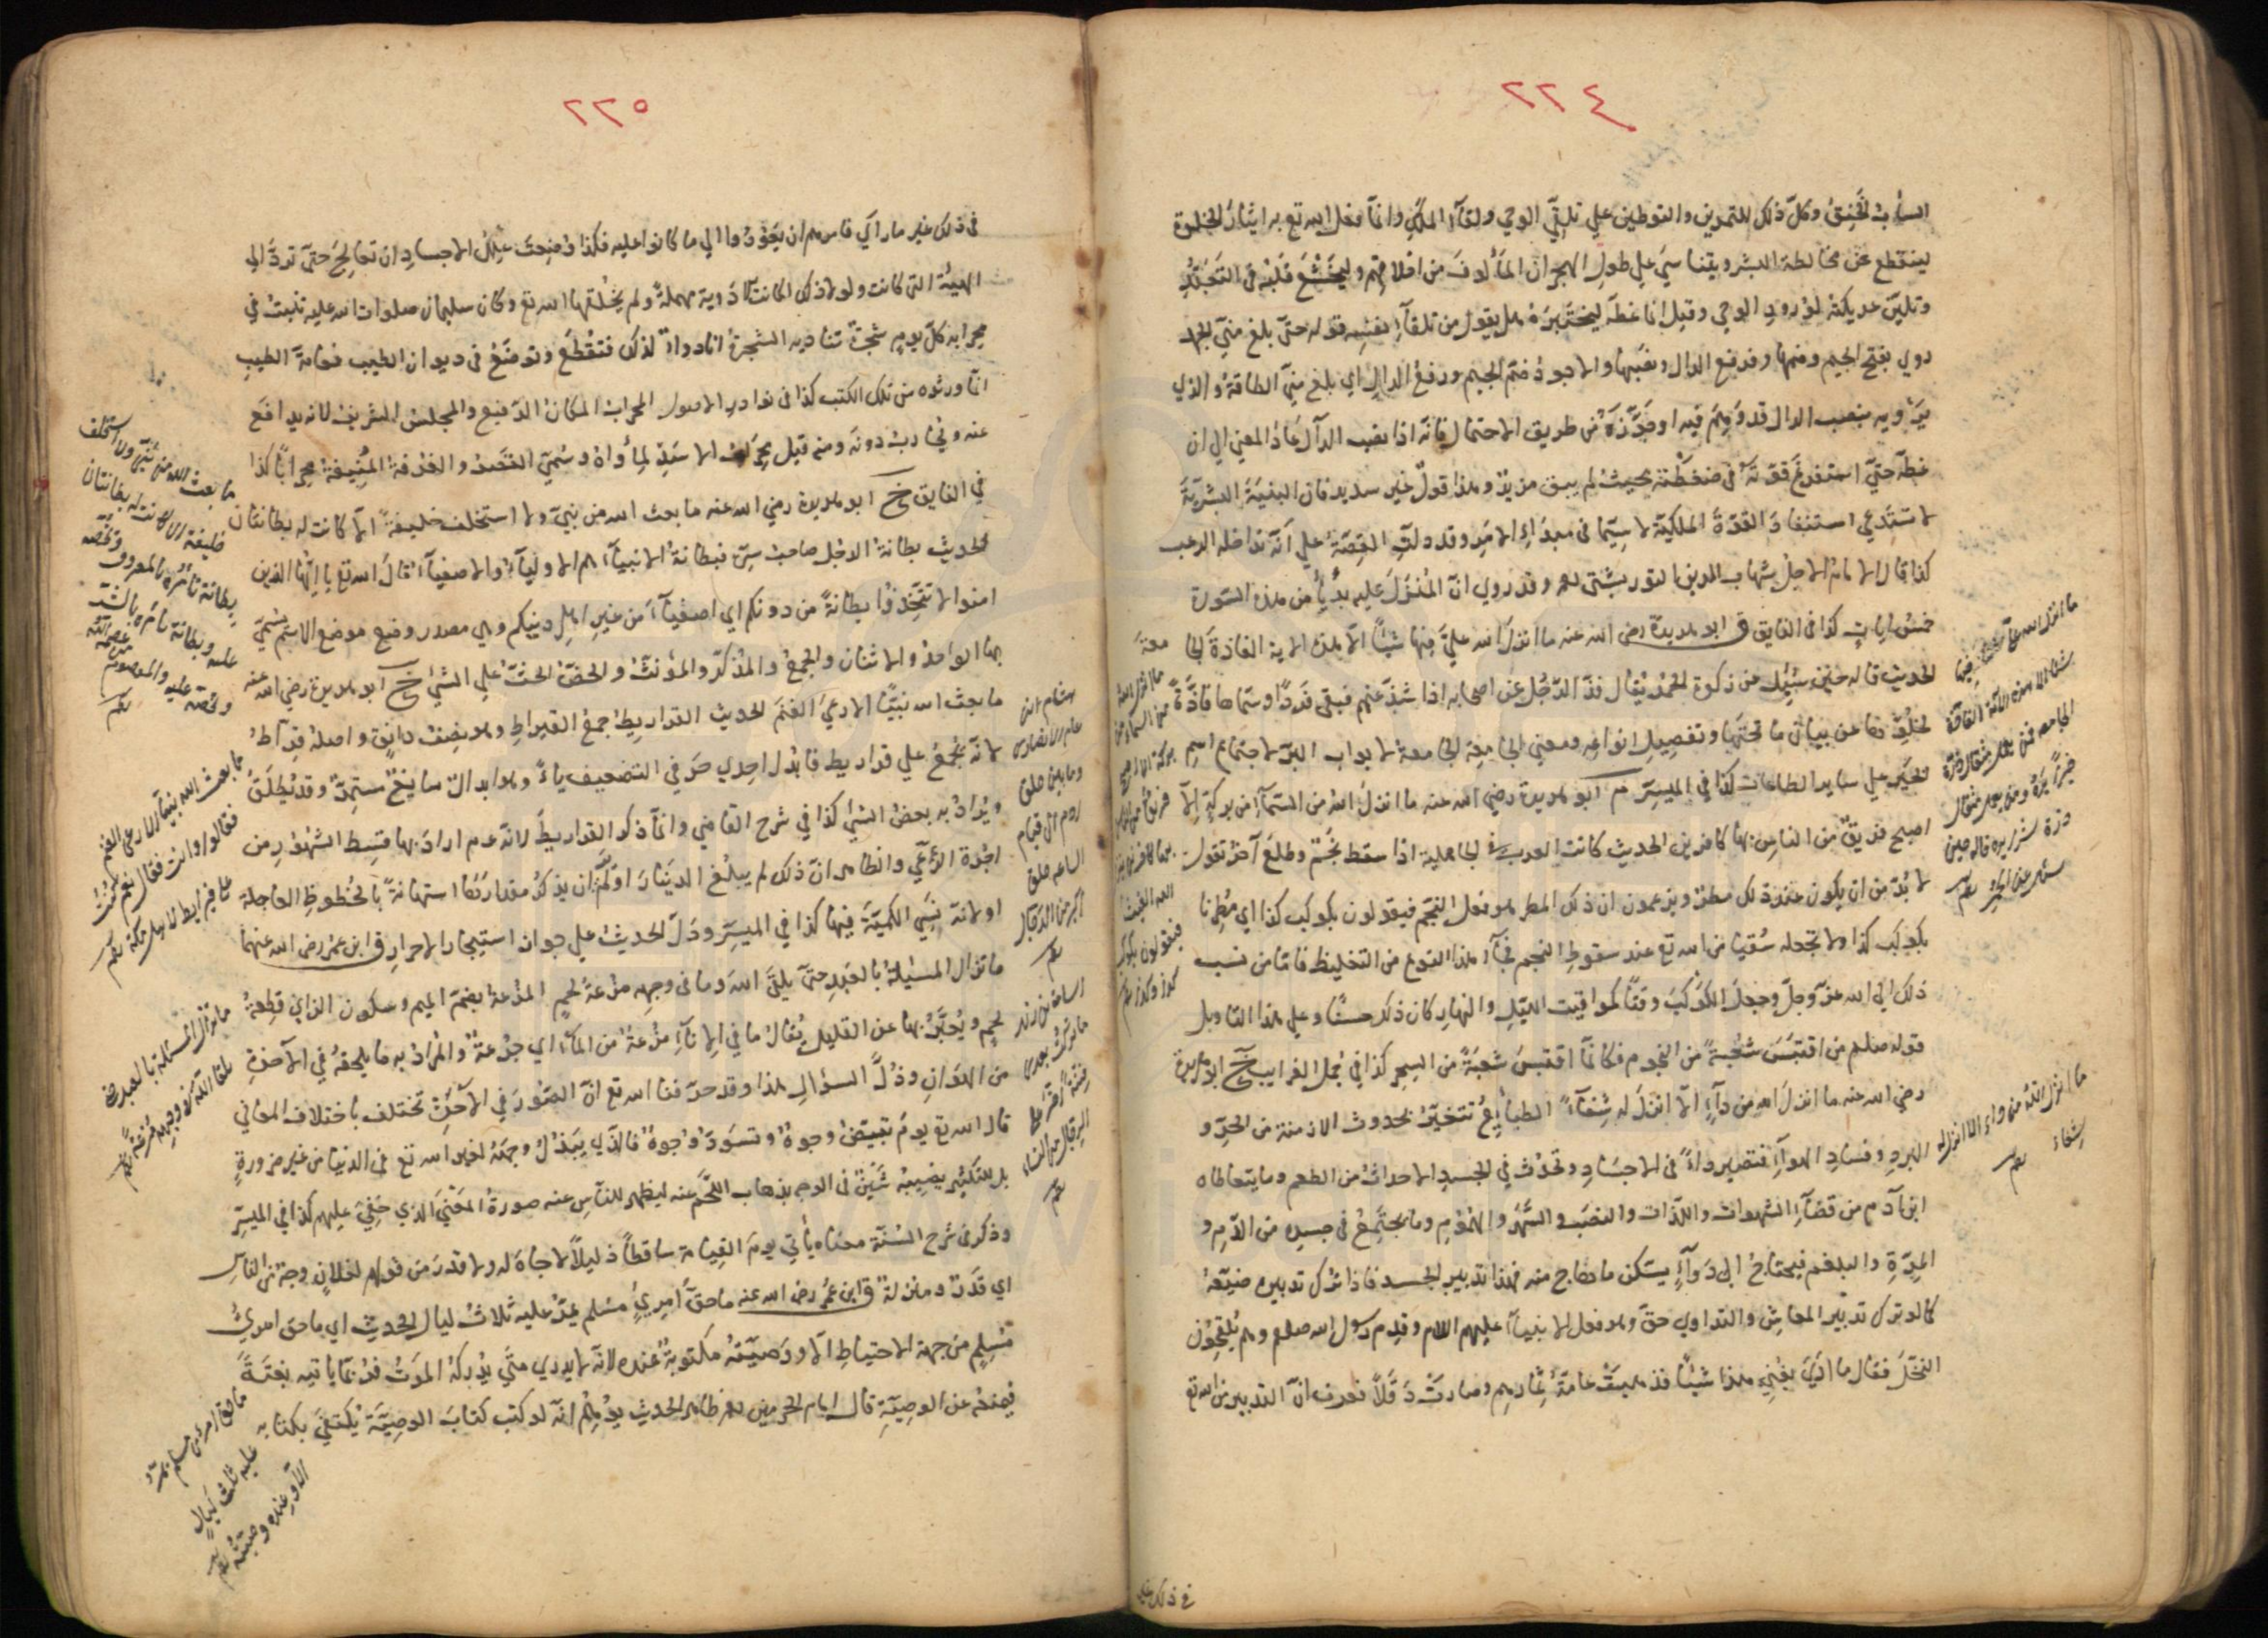 ٢٢٤
السأب الخنق وكل ذلك للتمرين والتوطين علي تلقي الوحي ولقاء الملك وانما فعل الله تع به ايثار الخلوة
لينقطع عن مخالطة البشر ويتناسي علي طول الهجران المألوف من اخلاقهم وليخشع قلبه في التجرد
وتلين عريكته لورود الوحي وقيل انما غطه ليختبره هل يقول من تلقاء نفسه قوله حتي بلغ مني الجهد
روي بفتح الجيم وضمها وفرفع الدال ونصبها والاجود ضم الجيم ورفع الدال اي بلغ مني الطاقة والذي
يرويه بنصب الدال قد وهم فيه او جوزه من طريق الاحتمال فانه اذا نصب الدال عاد المعني الي ان
غطه حتي استفرغ قوته في ضغطته بحيث لم يبق مزيد وهذا قول غير سديد فان البنية البشرية
لا تستدعي استنفاد القوة الملكية لا سيما في مبدأ الامر وقد دلت القصة علي انه تداخله الرعب
كذا قال الامام الاجل شهاب الدين التوربشتي وقد روي ان المنزل عليه بديا من هذه السورة
خمس ايات كذا في الفايق ق ابو هريرة رضي الله عنه ما انزل الله علي فيها شيئا الا هذه الاية الفاذة الجامعة
الحديث قاله حين سئل عن زكوة الحمر يقال فذ الرجل عن اصحابه اذا شذ عنهم فبقي فردا وسماها فاذة
لخلوها عن بيان ما تحتها وتفصيل انواعه ومعني الجامعة لابواب البر لاجتماع اسم
الخير علي ساير الطاعات كذا في الميسر م ابو هريرة رضي الله عنه ما انزل الله من السماء من بركة الا
اصبح فريق من الناس بها كافرين الحديث كانت العرب في الجاهلية اذا سقط نجم وطلع آخر تقول
لا بد من ان يكون عند ذلك مطر ويزعمون ان ذلك المطر هو فعل النجم فيقولون بكوكب كذا اي مطرنا
بكوكب كذا ولا تجعله سقيا من الله تع عند سقوط النجم فجاء هذا النوع من التغليظ فاما من نسب
ذلك الي الله عز وجل وجعل الكوكب وقتا كمواقيت الليل والنهار كان ذلك حسنا وعلي هذا التاويل
قوله صلعم من اقتبس شعبة من النجوم فكانما اقتبس شعبة من السحر كذا في جمل الغرايب خ ابو هريرة
رضي الله عنه ما انزل الله من داء الا انزل له شفاء الطبايع تتغير بحدوث الازمنة من الحر و
البرد وفساد الهواء فتصير داء في الاجساد وتحدث في الجسد الاحداث من الطعم وما يتعاطاه
ابن آدم من قضاء الشهوات واللذات والنصب والسهر والهموم وما يجتمع في جسده من الدم و
المرة والبلغم فيحتاج الي دواء يسكن ما هاج منه فهذا تدبير الجسد فاذا ترك تدبيره ضيعه
كما لو ترك تدبير المعاش والتداوي حق وهو فعل الانبياء عليهم السلام وقدم رسول الله صلعم وهم يلقحون
النخل فقال ما اري يغني هذا شيئا فذهبت عامة ثمارهم وصارت دقلا فعرف ان التدبير من الله تع
ما انزل الله من داء الا انزل له
شفاء
في ذلك غير
٢٢٥
في ذلك غير ما رأي فامرهم ان يعودوا الي ما كانوا عليه فكذا وضعت علل الاجساد ان تعالج حتي ترد الي
الهيئة التي كانت ولولا ذلك لكانت الادوية مهملة ولم يخلقها الله تع وكان سليمان صلوات الله عليه تنبت في
محرابه كل يوم شجرة تناديه الشجرة انا دواء لذلك فتقطع وتوضع في ديوان الطبيب فعامة الطب
انما ورثوه من تلك الكتب كذا في نوادر الاصول المحراب المكان الرفيع والمجلس الشريف لانه يدافع
عنه ويحارب دونه ومنه قيل محراب الاسد لمأواه وسمي القصر والغرفة المنيفة محرابا كذا
في الفايق خ ابو هريرة رضي الله عنه ما بعث الله من نبي ولا استخلف خليفة الا كانت له بطانتان
الحديث بطانة الرجل صاحب سره فبطانة الانبياء هم الاولياء والاصفياء قال الله تع يا ايها الذين
امنوا لا تتخذوا بطانة من دونكم اي اصفياء من غير اهل دينكم وهي مصدر وضع موضع الاسم يسمي
بها الواحد والاثنان والجمع والمذكر والمؤنث والحض الحث علي الشيء خ ابو هريرة رضي الله عنه
ما بعث الله نبيا الا رعي الغنم الحديث القراريط جمع القيراط وهو نصف دانق واصله قراط
لانه يجمع علي قراريط فابدل احدي حرفي التضعيف ياء وهو ابدال سايغ مستمر وقد يطلق
ويراد به بعض الشيء كذا في شرح القاضي وانما ذكر القراريط لانه عم اراد بها قسط الشهور من
اجرة الرعي والظاهر ان ذلك لم يبلغ الدينار او كره ان يذكر مقدارها استهانة بالحظوظ العاجلة
او لانه نسي الكمية فيها كذا في الميسر ودل الحديث علي جواز استيجار الاحرار ق ابن عمر رضي الله عنهما
ما تزال المسئلة بالعبد حتي يلقي الله وما في وجهه مزعة لحم المزعة بضم الميم وسكون الزاي قطعة
لحم ويعبر بها عن القليل يقال ما في الاناء مزعة من الماء اي جرعة والمراد به ما يلحقه في الآخرة
من الهوان وذل السؤال هذا وقد عرفنا الله تع ان الصور في الآخرة تختلف باختلاف المعاني
قال الله تع يوم تبيض وجوه وتسود وجوه فالذي يبذل وجهه لغير الله تع في الدنيا من غير ضرورة
بل للتكثر يصيبه شين في الوجه بذهاب اللحم عنه ليظهر للناس عنه صورة المعني الذي خفي عليهم كذا في الميسر
وذكر في شرح السنة معناه يأتي يوم القيامة ساقطا ذليلا لا جاه له ولا قدر من قولهم لفلان وجه في الناس
اي قدر ومنزلة ق ابن عمر رضي الله عنه ما حق امرئ مسلم يمر عليه ثلاث ليال الحديث اي ما حق امرئ
مسلم من جهة الاحتياط الا ووصيته مكتوبة عنده لانه لا يدري متي يدركه الموت فربما ياتيه بغتة
فيمنعه عن الوصية قال امام الحرمين ظاهر الحديث يوهم انه لو كتب كتاب الوصية يكتفي بكتابه
ما بعث الله من نبي ولا استخلف
خليفة الا كانت له بطانتان
بطانة تامره بالمعروف وتحضه
عليه وبطانة تامره بالشر
وتحضه عليه والمعصوم من عصمه الله
ما بعث الله نبيا الا رعي الغنم
فقالوا وانت فقال نعم كنت
علي قراريط لاهل مكة
ما تزال المسئلة بالعبد حتي
يلقا الله وما في وجهه مزعة لحم
هشام ابن
عامر الانصاري
ما بين خلق
ادم الي قيام
الساعة خلق
اكبر من الدجال
اسامة بن زيد
ما تركت بعدي
فتنة اضر علي
الرجال من النساء
ما حق امرئ مسلم يمر
عليه ثلث ليال
الا وعنده وصيته